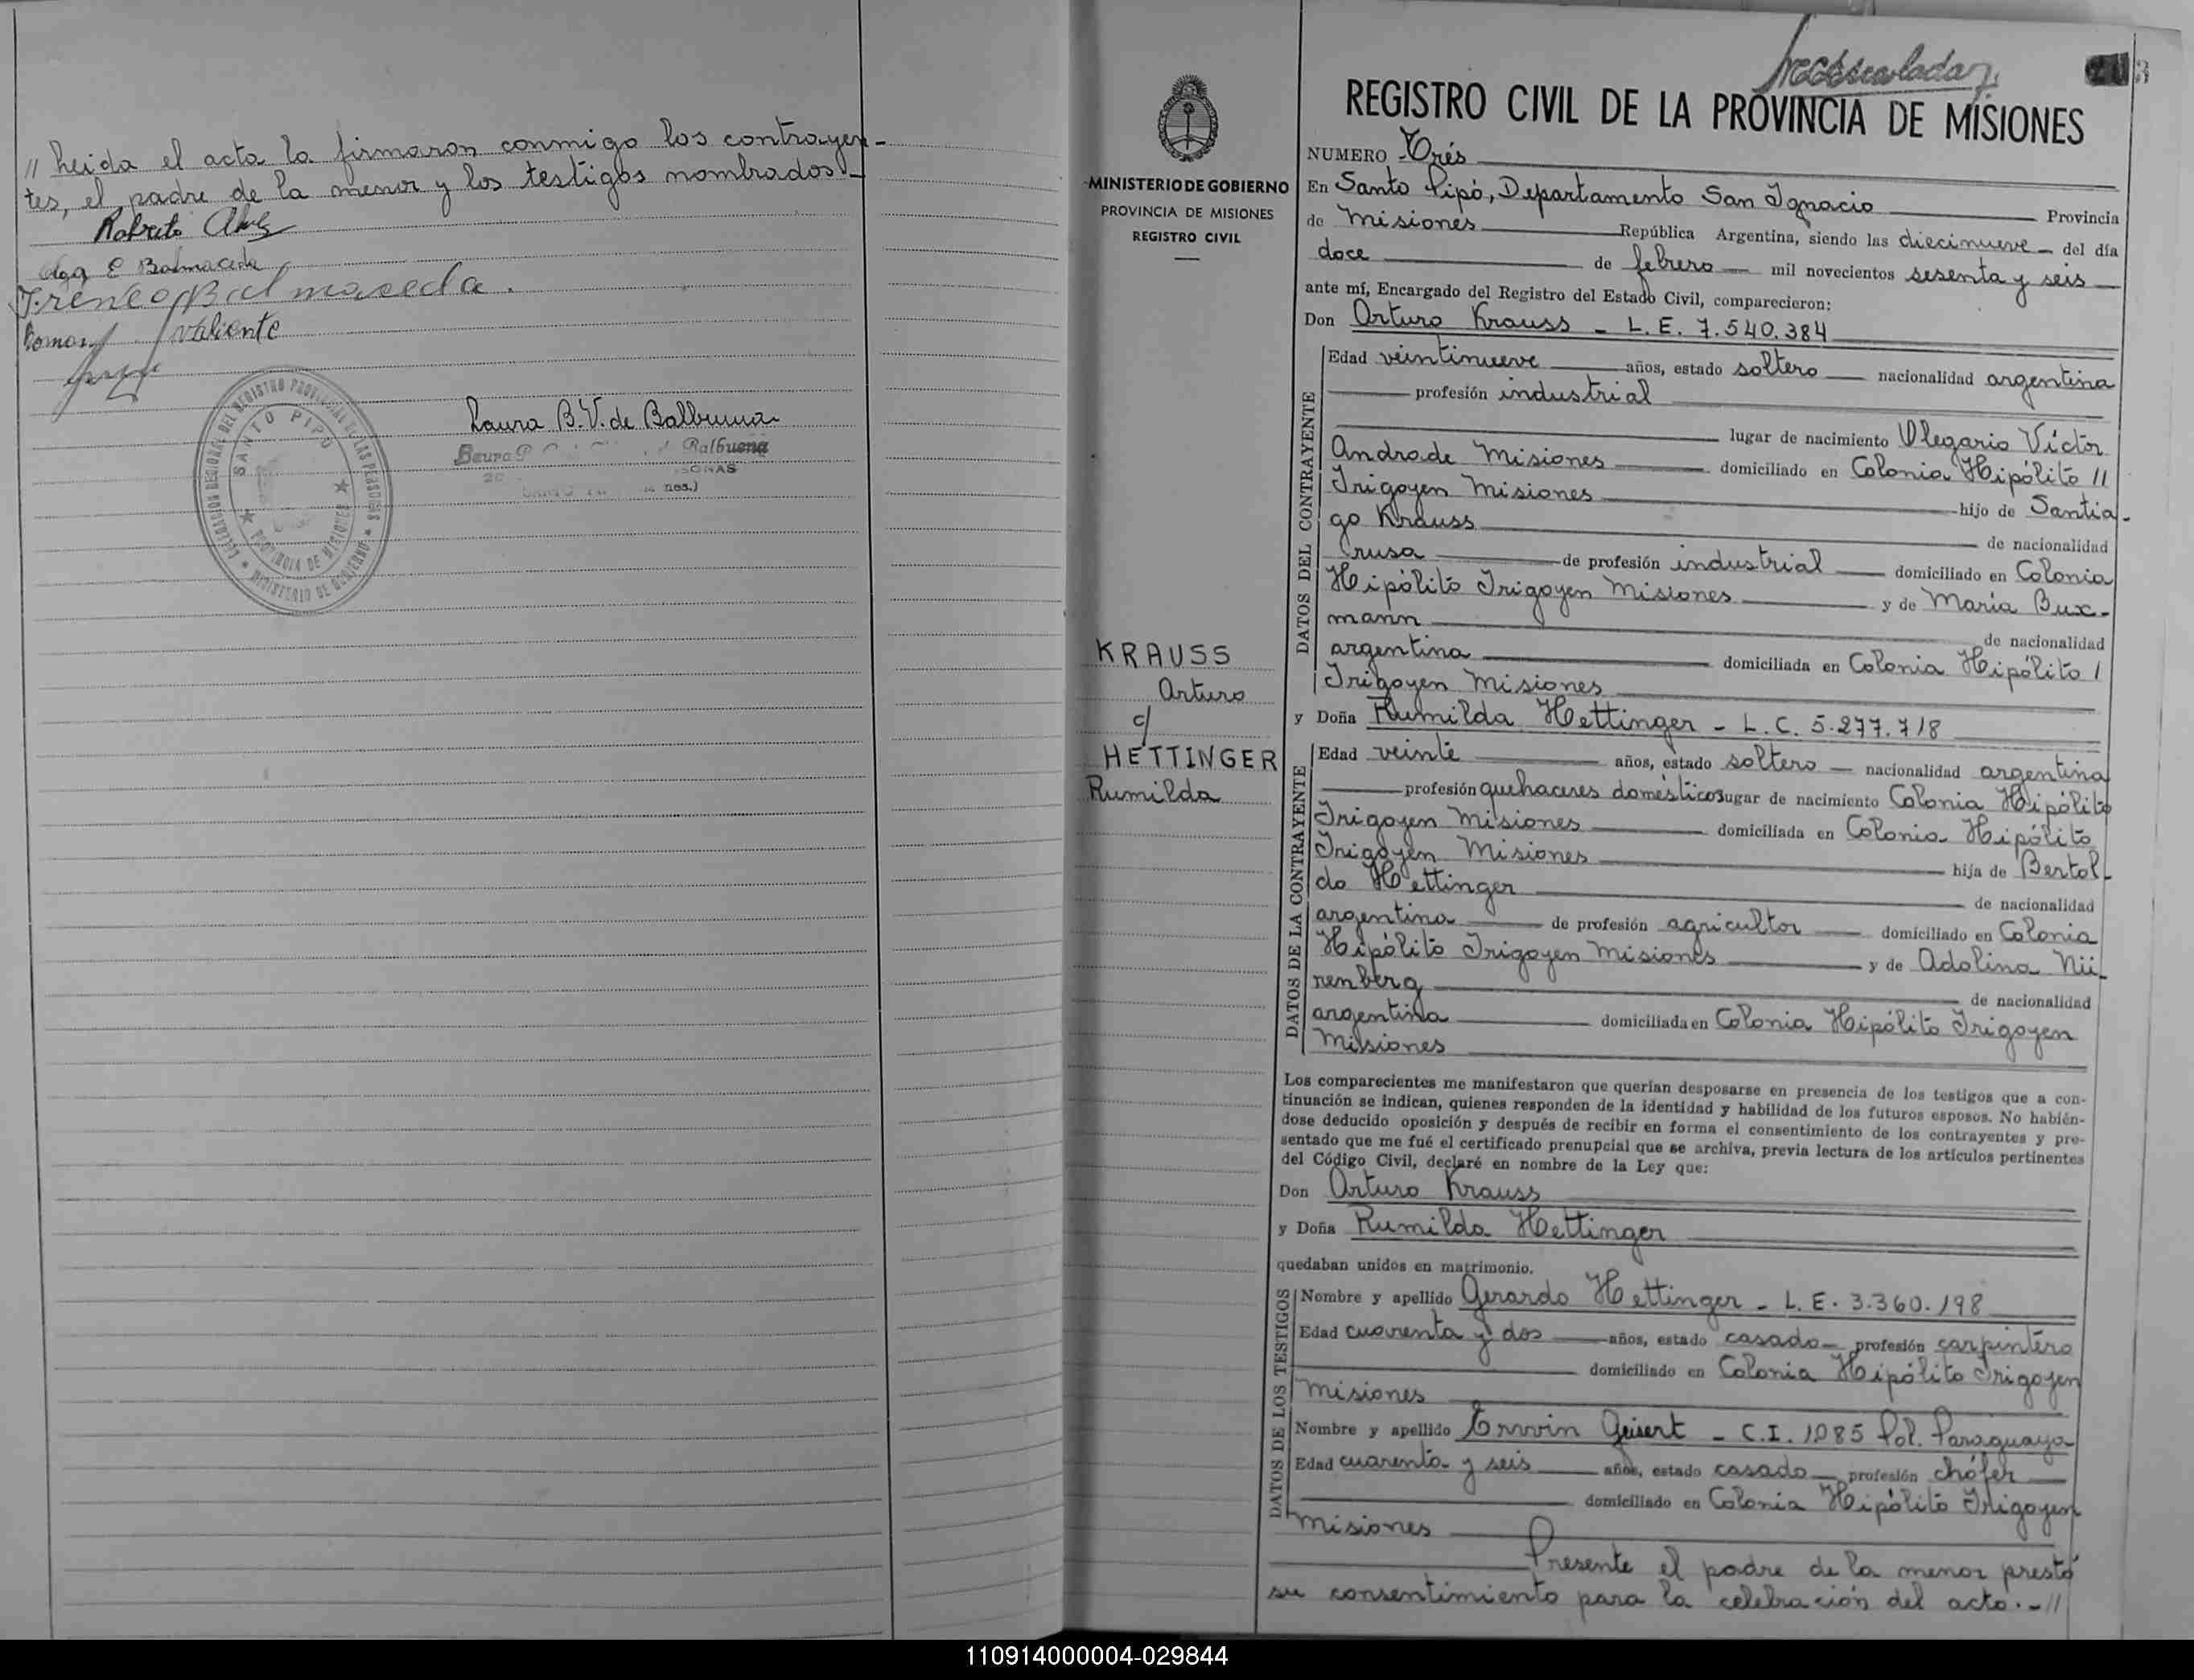 // Leida el acta la firmaron conmigo los contrayen-
tes, el padre de la menor y los testigos nombrados.-
Roberto
Olga E Balmaceda
Ireneo Balmaceda.
Roman Valiente
DELEGACION REGIONAL DEL REGISTRO PROVINCIAL DE LAS PERSONAS
SANTO PIPO
PROVINCIA DE MISIONES
MINISTERIO DE GOBIERNO
Laura B. V. de Balbuena
Balbuena
MINISTERIO DE GOBIERNO
PROVINCIA DE MISIONES
REGISTRO CIVIL
KRAUSS
Arturo
c/
HETTINGER
Rumilda
3
REGISTRO CIVIL DE LA PROVINCIA DE MISIONES
NUMERO Trés
En Santo Pipó, Departamento San Ignacio Provincia
de Misiones República Argentina, siendo las diecinueve del día
doce de febrero mil novecientos sesenta y seis
ante mí, Encargado del Registro del Estado Civil, comparecieron:
Don Arturo Krauss - L. E. 7.540.384
DATOS DEL CONTRAYENTE
Edad veintinueve años, estado soltero nacionalidad argentina
profesión industrial
lugar de nacimiento Olegario Víctor
Andrade Misiones domiciliado en Colonia Hipólito //
Irigoyen Misiones hijo de Santia-
go Krauss de nacionalidad
rusa de profesión industrial domiciliado en Colonia
Hipólito Irigoyen Misiones y de María Bux-
mann de nacionalidad
argentina domiciliada en Colonia Hipólito /
Irigoyen Misiones
y Doña Rumilda Hettinger - L. C. 5.277.718
DATOS DE LA CONTRAYENTE
Edad veinte años, estado soltero nacionalidad argentina
profesión quehaceres domésticos lugar de nacimiento Colonia Hipólito
Irigoyen Misiones domiciliada en Colonia Hipólito
Irigoyen Misiones hija de Bertol-
do Hettinger de nacionalidad
argentina de profesión agricultor domiciliado en Colonia
Hipólito Irigoyen Misiones y de Adolina Nü-
renberg de nacionalidad
argentina domiciliada en Colonia Hipólito Irigoyen
Misiones
Los comparecientes me manifestaron que querían desposarse en presencia de los testigos que a con-
tinuación se indican, quienes responden de la identidad y habilidad de los futuros esposos. No habién-
dose deducido oposición y después de recibir en forma el consentimiento de los contrayentes y pre-
sentado que me fué el certificado prenupcial que se archiva, previa lectura de los artículos pertinentes
del Código Civil, declaré en nombre de la Ley que:
Don Arturo Krauss
y Doña Rumilda Hettinger
quedaban unidos en matrimonio.
DATOS DE LOS TESTIGOS
Nombre y apellido Gerardo Hettinger - L. E. 3.360.198
Edad cuarenta y dos años, estado casado profesión carpintero
domiciliado en Colonia Hipólito Irigoyen
Misiones
Nombre y apellido Erwin Geisert - C. I. 1085 Pol. Paraguaya
Edad cuarenta y seis años, estado casado profesión chófer
domiciliado en Colonia Hipólito Irigoyen
Misiones
Presente el padre de la menor prestó
su consentimiento para la celebración del acto.-//
110914000004-029844